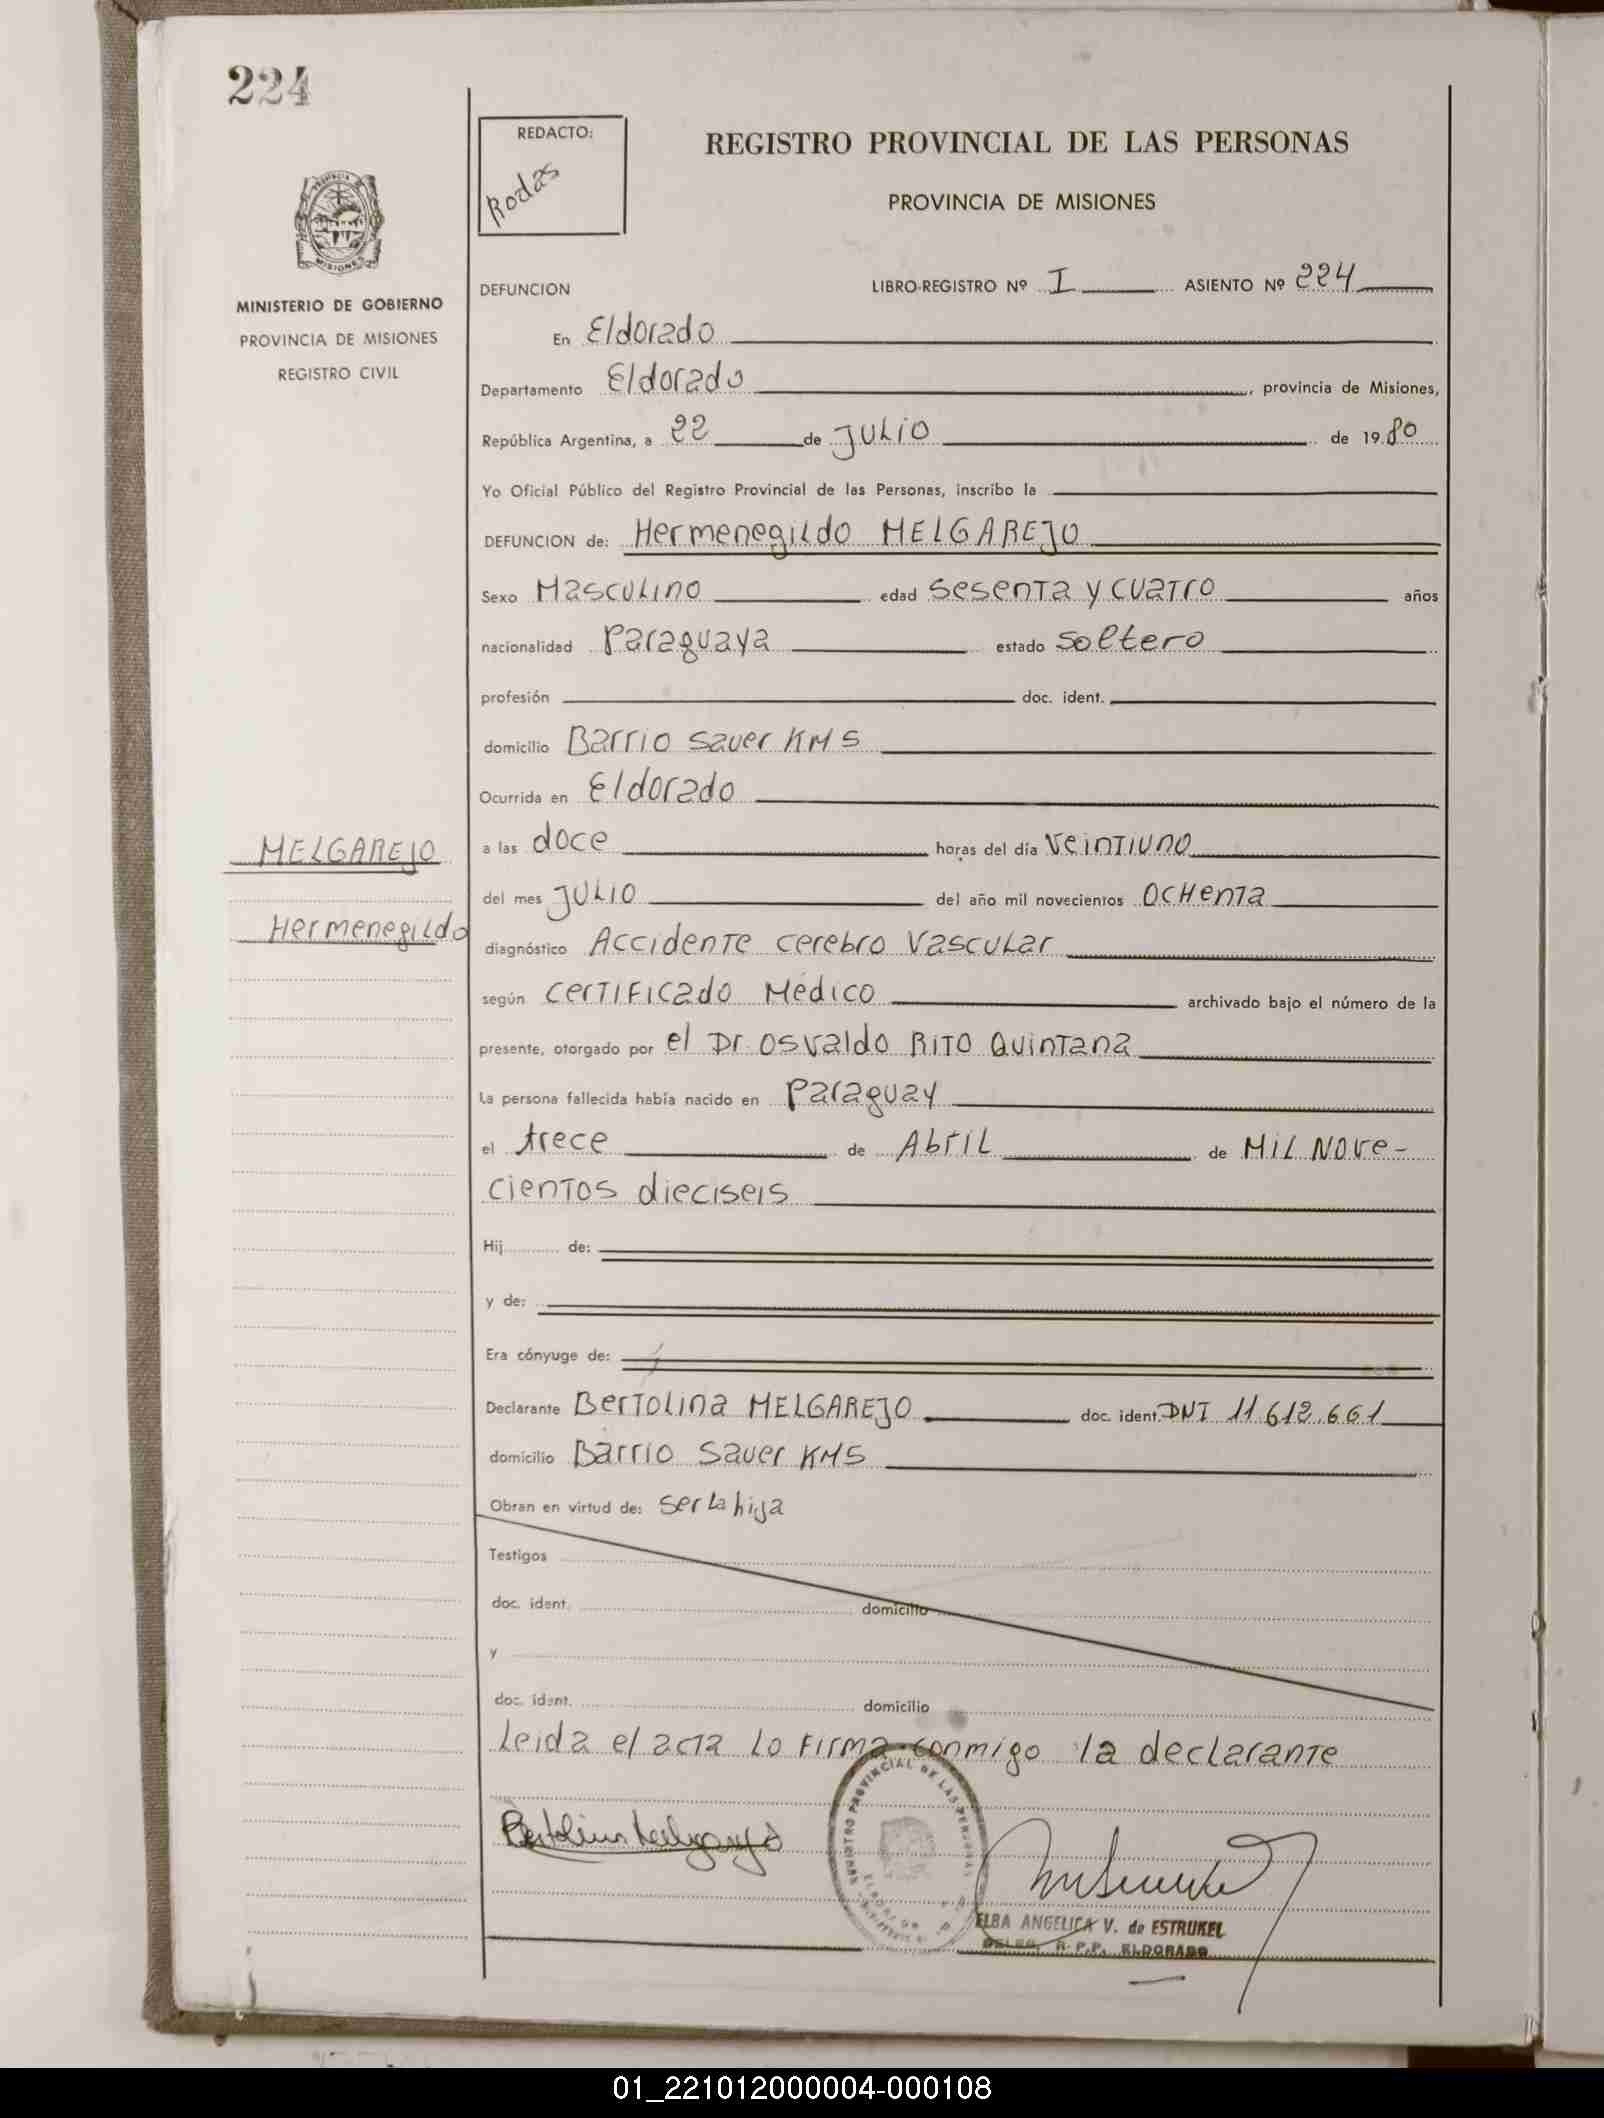 224
REDACTO:
Rodas
REGISTRO PROVINCIAL DE LAS PERSONAS
PROVINCIA DE MISIONES
MISIONES
MINISTERIO DE GOBIERNO
PROVINCIA DE MISIONES
REGISTRO CIVIL
DEFUNCION LIBRO-REGISTRO Nº I ASIENTO Nº 224
En Eldorado
Departamento Eldorado, provincia de Misiones,
República Argentina, a 22 de JULIO de 1980
Yo Oficial Público del Registro Provincial de las Personas, inscribo la
DEFUNCION de: Hermenegildo MELGAREJO
Sexo Masculino edad sesenta y cuatro años
nacionalidad Paraguaya estado soltero
profesión doc. ident.
domicilio Barrio Sauer KM 5
Ocurrida en Eldorado
MELGAREJO
Hermenegildo
a las doce horas del día veintiuno
del mes JULIO del año mil novecientos OCHenta
diagnóstico Accidente cerebro Vascular
según certificado Médico archivado bajo el número de la
presente, otorgado por el Dr. Osvaldo Rito Quintana
La persona fallecida había nacido en Paraguay
el trece de Abril de Mil Nove-
cientos dieciseis
Hij de:
y de:
Era cónyuge de:
Declarante Bertolina MELGAREJO doc. ident. DNI 11.612.661
domicilio Barrio Sauer KM5
Obran en virtud de: ser la hija
Testigos
doc. ident. domicilio
y
doc. ident. domicilio
Leida el acta lo firma conmigo la declarante
REGISTRO PROVINCIAL DE LAS PERSONAS
ELDORADO
ELBA ANGELICA V. de ESTRUKEL
DELEG. R.P.P. ELDORADO
01_221012000004-000108